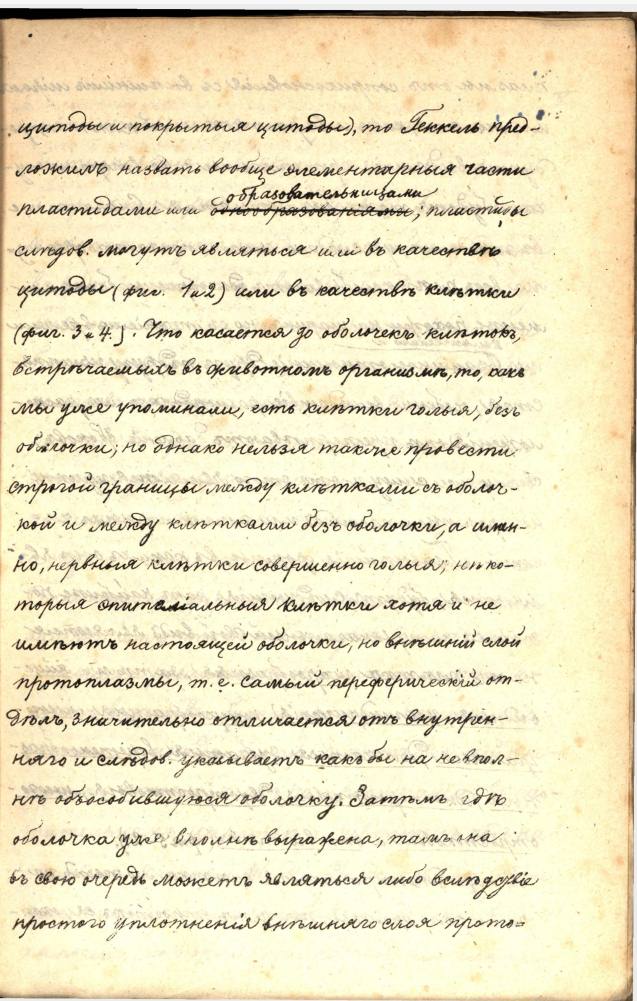 цитоды и покрытыя цитоды), то Геккель пред-
ложилъ назвать вообще элементарныя части
образовательницами
пластидами или однообразованіями; пластиды
слѣдов. могутъ являться или въ качествѣ
цитоды (фиг. 1 и 2) или въ качествѣ клѣтки
(фиг. 3 и 4.). Что касается до оболочекъ клѣтокъ,
встрѣчаемыхъ въ животномъ организмѣ, то, какъ
мы уже упоминали, есть клѣтки голыя, безъ
оболочки; но однако нельзя также провести
строгой границы между клѣтками съ оболоч-
кой и между клѣтками безъ оболочки, а имен-
но, нервныя клѣтки совершенно голыя; нѣко-
торыя эпителіальныя клѣтки хотя и не
имѣютъ настоящей оболочки, но внѣшній слой
протоплазмы, т. е. самый переферическій от-
дѣлъ, значительно отличается отъ внутрен-
няго и слѣдов. указываетъ какъ бы на не впол-
нѣ обособившуюся оболочку. Затѣмъ гдѣ
оболочка уже вполнѣ выражена, тамъ она
въ свою очередь можетъ являться либо вслѣдствіе
простого уплотненія внѣшняго слоя прото-